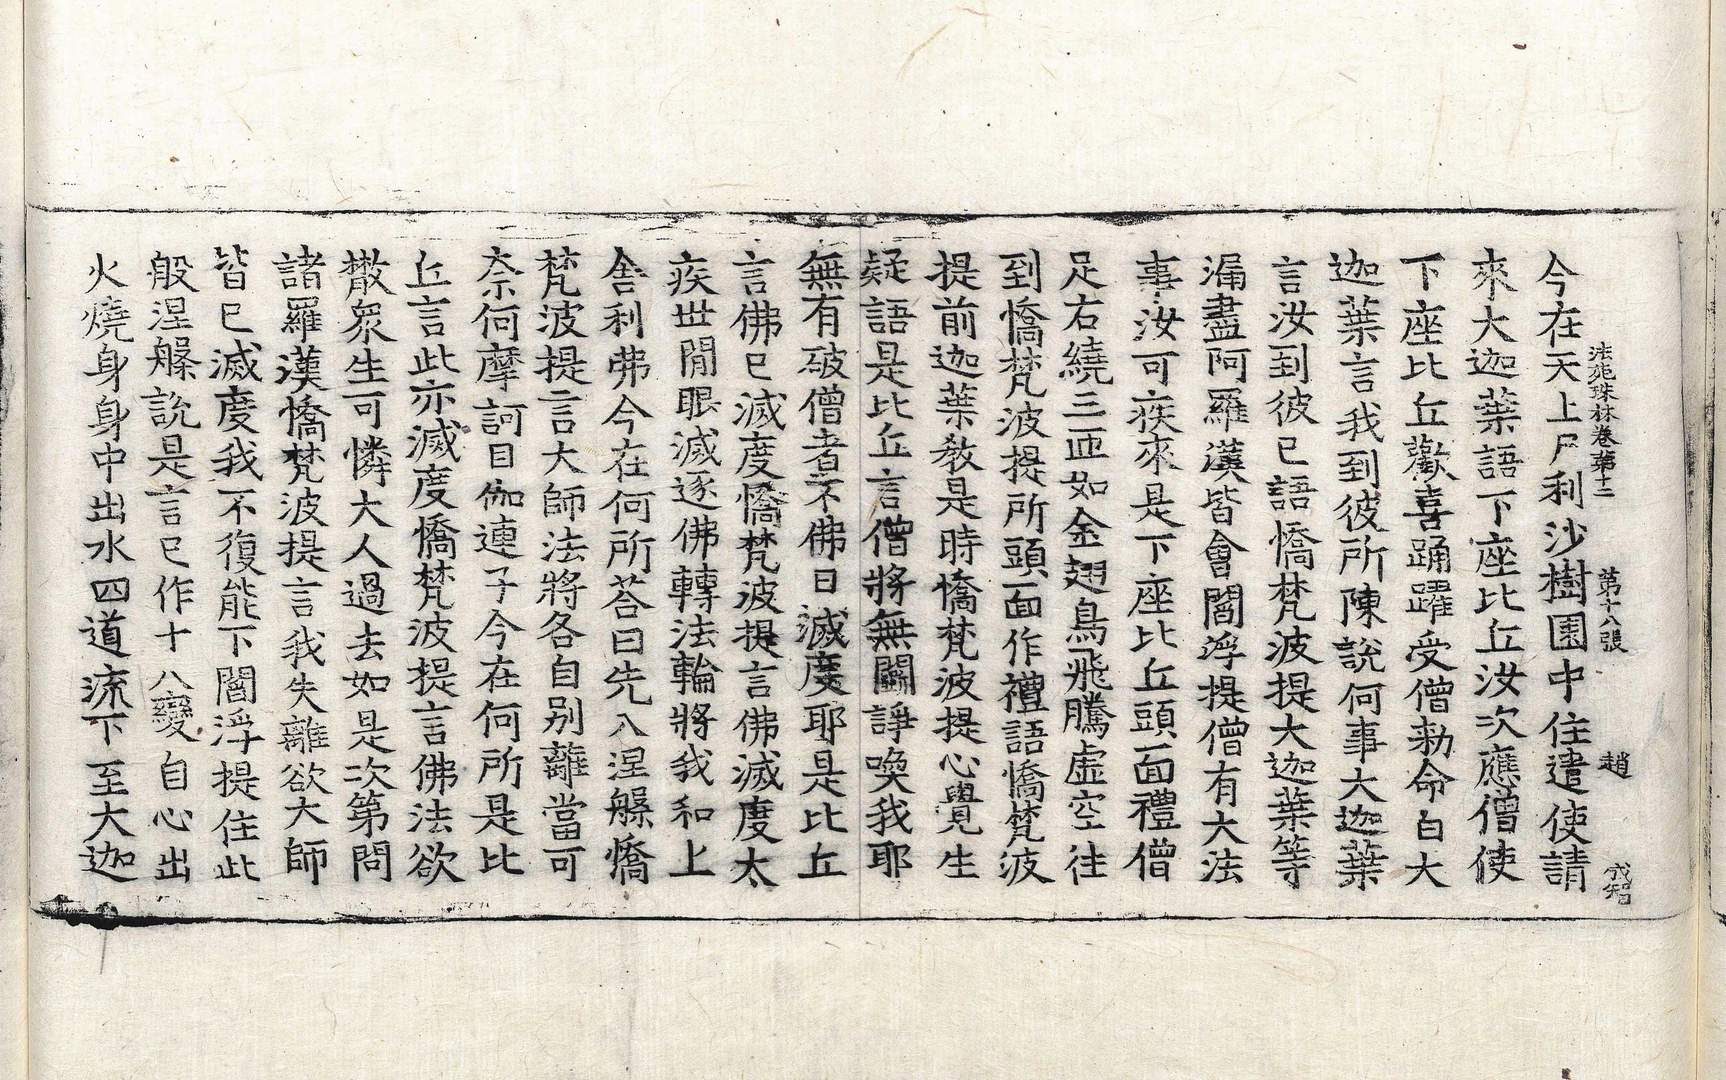 法苑珠林卷第十二　第十八張　趙　成智
今在天上尸利沙樹園中住遣使請
來大迦葉語下座比丘汝次應僧使
下座比丘歡喜踊躍受僧勑命白大
迦葉言我到彼所陳說何事大迦葉
言汝到彼已語憍梵波提大迦葉等
漏盡阿羅漢皆會閻浮提僧有大法
事汝可疾來是下座比丘頭面禮僧
足右繞三匝如金翅鳥飛騰虛空往
到憍梵波提所頭面作禮語憍梵波
提前迦葉教是時憍梵波提心覺生
疑語是比丘言僧將無鬪諍喚我耶
無有破僧者不佛日滅度耶是比丘
言佛已滅度憍梵波提言佛滅度太
疾世閒眼滅逐佛轉法輪將我和上
舍利弗今在何所荅曰先入涅槃憍
梵波提言大師法將各自別離當可
柰何摩訶目伽連子今在何所是比
丘言此亦滅度憍梵波提言佛法欲
散衆生可憐大人過去如是次第問
諸羅漢憍梵波提言我失離欲大師
皆已滅度我不復能下閻浮提住此
般涅槃說是言已作十八變自心出
火燒身身中出水四道流下至大迦